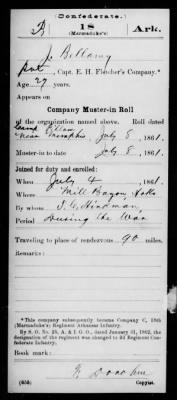 (Confederate.)
B 18 Ark.
(Marmaduke's)
J. Bellamy
Pvt, Capt. E. H. Fletcher's Company.*
Age 27 years.
Appears on
Company Muster-in Roll
of the organization named above. Roll dated
Camp
near Memphis, July 8, 1861.
Muster-in to date July 8, 1861.
Joined for duty and enrolled:
When July 4, 1861.
Where Mill Bayou Arks
By whom T. C. Hindman
Period During the War
Traveling to place of rendezvous 90 miles.
Remarks:
*This company subsequently became Company C, 18th
(Marmaduke's) Regiment Arkansas Infantry.
By S. O. No. 25, A & I G O., dated January 31, 1862, the
designation of the regiment was changed to 3d Regiment Con-
federate Infantry.
Book mark:
Copyist.